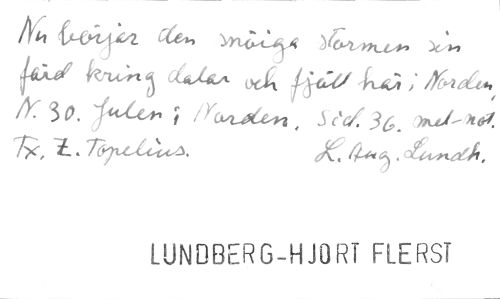 Nu börjar den snöiga stormen sin
färd kring dalar och fjäll här i Norden,
N. 30. Julen i Norden. Sid. 36. mel-not.
Tx. Z. Topelius. L. Aug. Lundh.
LUNDBERG-HJORT FLERST